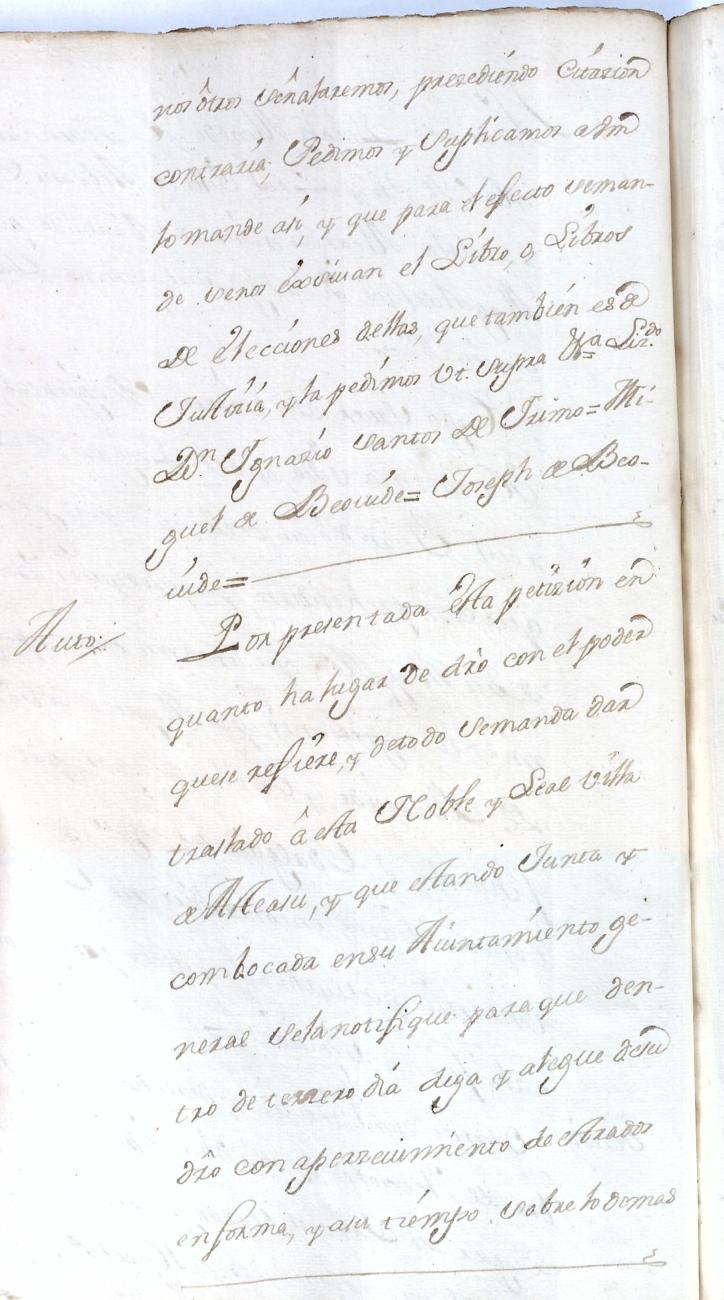 nos ôtros señalaremos, prezediendo Citazion
contraria; Pedimos y Suplicamos a Vm
lo mande asi, y que para el efecto seman-
de senos exsivan el Libro, o, Libros
de elecciones dellas, que también es de
Justizia, y la pedimos Vt. supra Lizdo
Dn. Ignazio Santos de Tximo= Mi-
guel de Beovide= Joseph de Beo-
vide=
Auto.
Por presentada esta petizion en
quanto ha lugar de dro con el poder
quese refiere, y detodo semanda dar
traslado â esta Noble y Leal Villa
de Asteasu, y que estando Junta y
combocada ensu Aiuntamiento ge-
neral selanotifique paraque den-
tro de terzero día diga y alegue desu
dro con aperzevimiento de estrados
enforma, y asu tiémpo. sobre lo demas